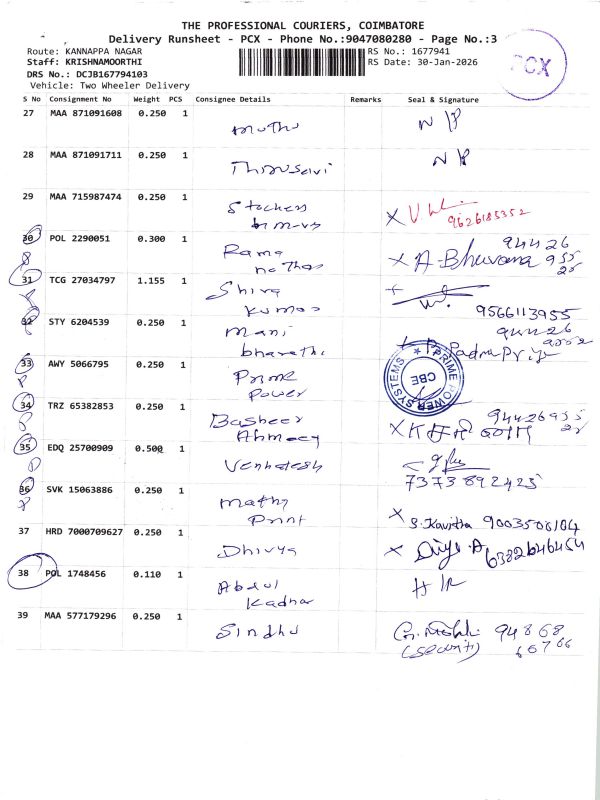 THE PROFESSIONAL COURIERS, COIMBATORE
Delivery Runsheet - PCX - Phone No.:9047080280 - Page No.:3
Route: KANNAPPA NAGAR
RS No.: 1677941
Staff: KRISHNAMOORTHI
RS Date: 30-Jan-2026
DRS No.: DCJB167794103
Vehicle: Two Wheeler Delivery
PCX
S No Consignment No Weight PCS Consignee Details Remarks Seal & Signature
27 MAA 871091608 0.250 1 muthu N P
28 MAA 871091711 0.250 1 N P
29 MAA 715987474 0.250 1 X 9626185352
30 POL 2290051 0.300 1 Rama nathan X A-Bhuvana 94426
31 TCG 27034797 1.155 1 Shiva kumar 9566113955
32 STY 6204539 0.250 1 mani bharathi Padma Priya 94426
33 AWY 5066795 0.250 1 Prime Power PRIME POWER SYSTEMS CBE
34 TRZ 65382853 0.250 1 Basheer Ahmed X 94426955
35 EDQ 25700909 0.500 1 Venkatesh 7373892425
36 SVK 15063886 0.250 1 mathy Print X S. Kavitha 9003506104
37 HRD 7000709627 0.250 1 Dhivya X 6382646454
38 POL 1748456 0.110 1 Abdul Kadhar
39 MAA 577179296 0.250 1 Sindhu 94868
(security) 66766